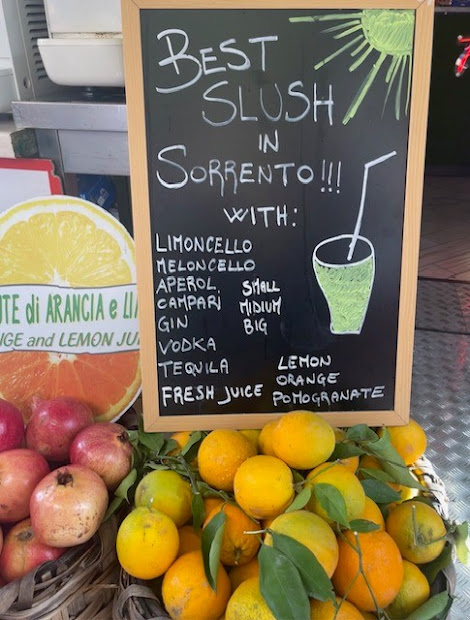 BEST
SLUSH
IN
SORRENTO!!!
WITH:
LIMONCELLO
MELONCELLO
APEROL
CAMPARI
GIN
VODKA
TEQUILA
FRESH JUICE
SMALL
MIDIUM
BIG
LEMON
ORANGE
POMOGRANATE
di ARANCIA e
and LEMON